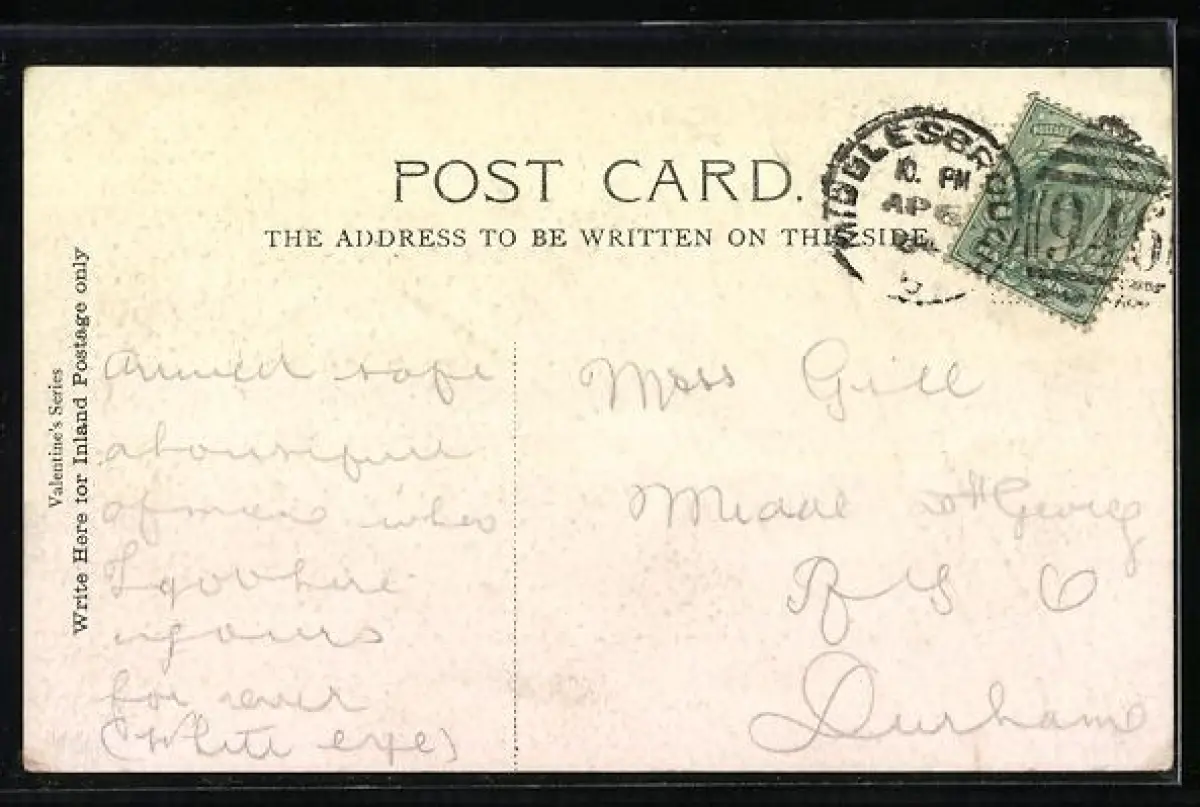 POST CARD.
THE ADDRESS TO BE WRITTEN ON THIS SIDE.
MIDDLESBROUGH
10. PM
AP 6
Valentine's Series
Write Here for Inland Postage only
Arrived safe
of me
I got here
yours
for ever
(White eye)
Miss Gill
St George
R S O
Durham